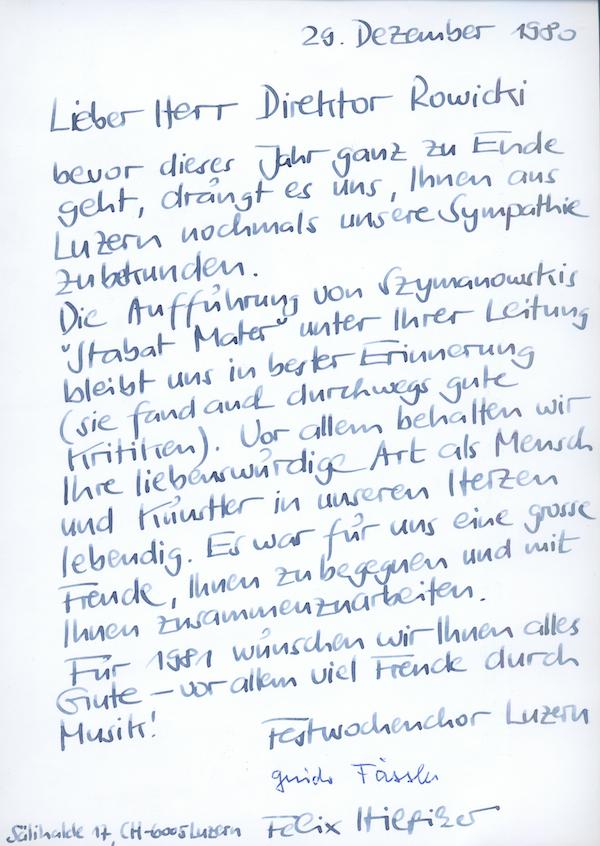 29. Dezember 1980
Lieber Herr Direktor Rowicki
bevor dieses Jahr ganz zu Ende
geht, drängt es uns, Ihnen aus
Luzern nochmals unsere Sympathie
zubekunden.
Die Aufführung von Szymanowskis
"Stabat Mater" unter Ihrer Leitung
bleibt uns in bester Erinnerung
(sie fand auch durchwegs gute
Kritiken). Vor allem behalten wir
Ihre liebenswürdige Art als Mensch
und Künstler in unseren Herzen
lebendig. Es war für uns eine grosse
Freude, Ihnen zubegegnen und mit
Ihnen zusammenzuarbeiten.
Für 1981 wünschen wir Ihnen alles
Gute – vor allem viel Freude durch
Musik!
Festwochenchor Luzern
Guido Fässler
Felix
Sälihalde 17, CH-6005 Luzern